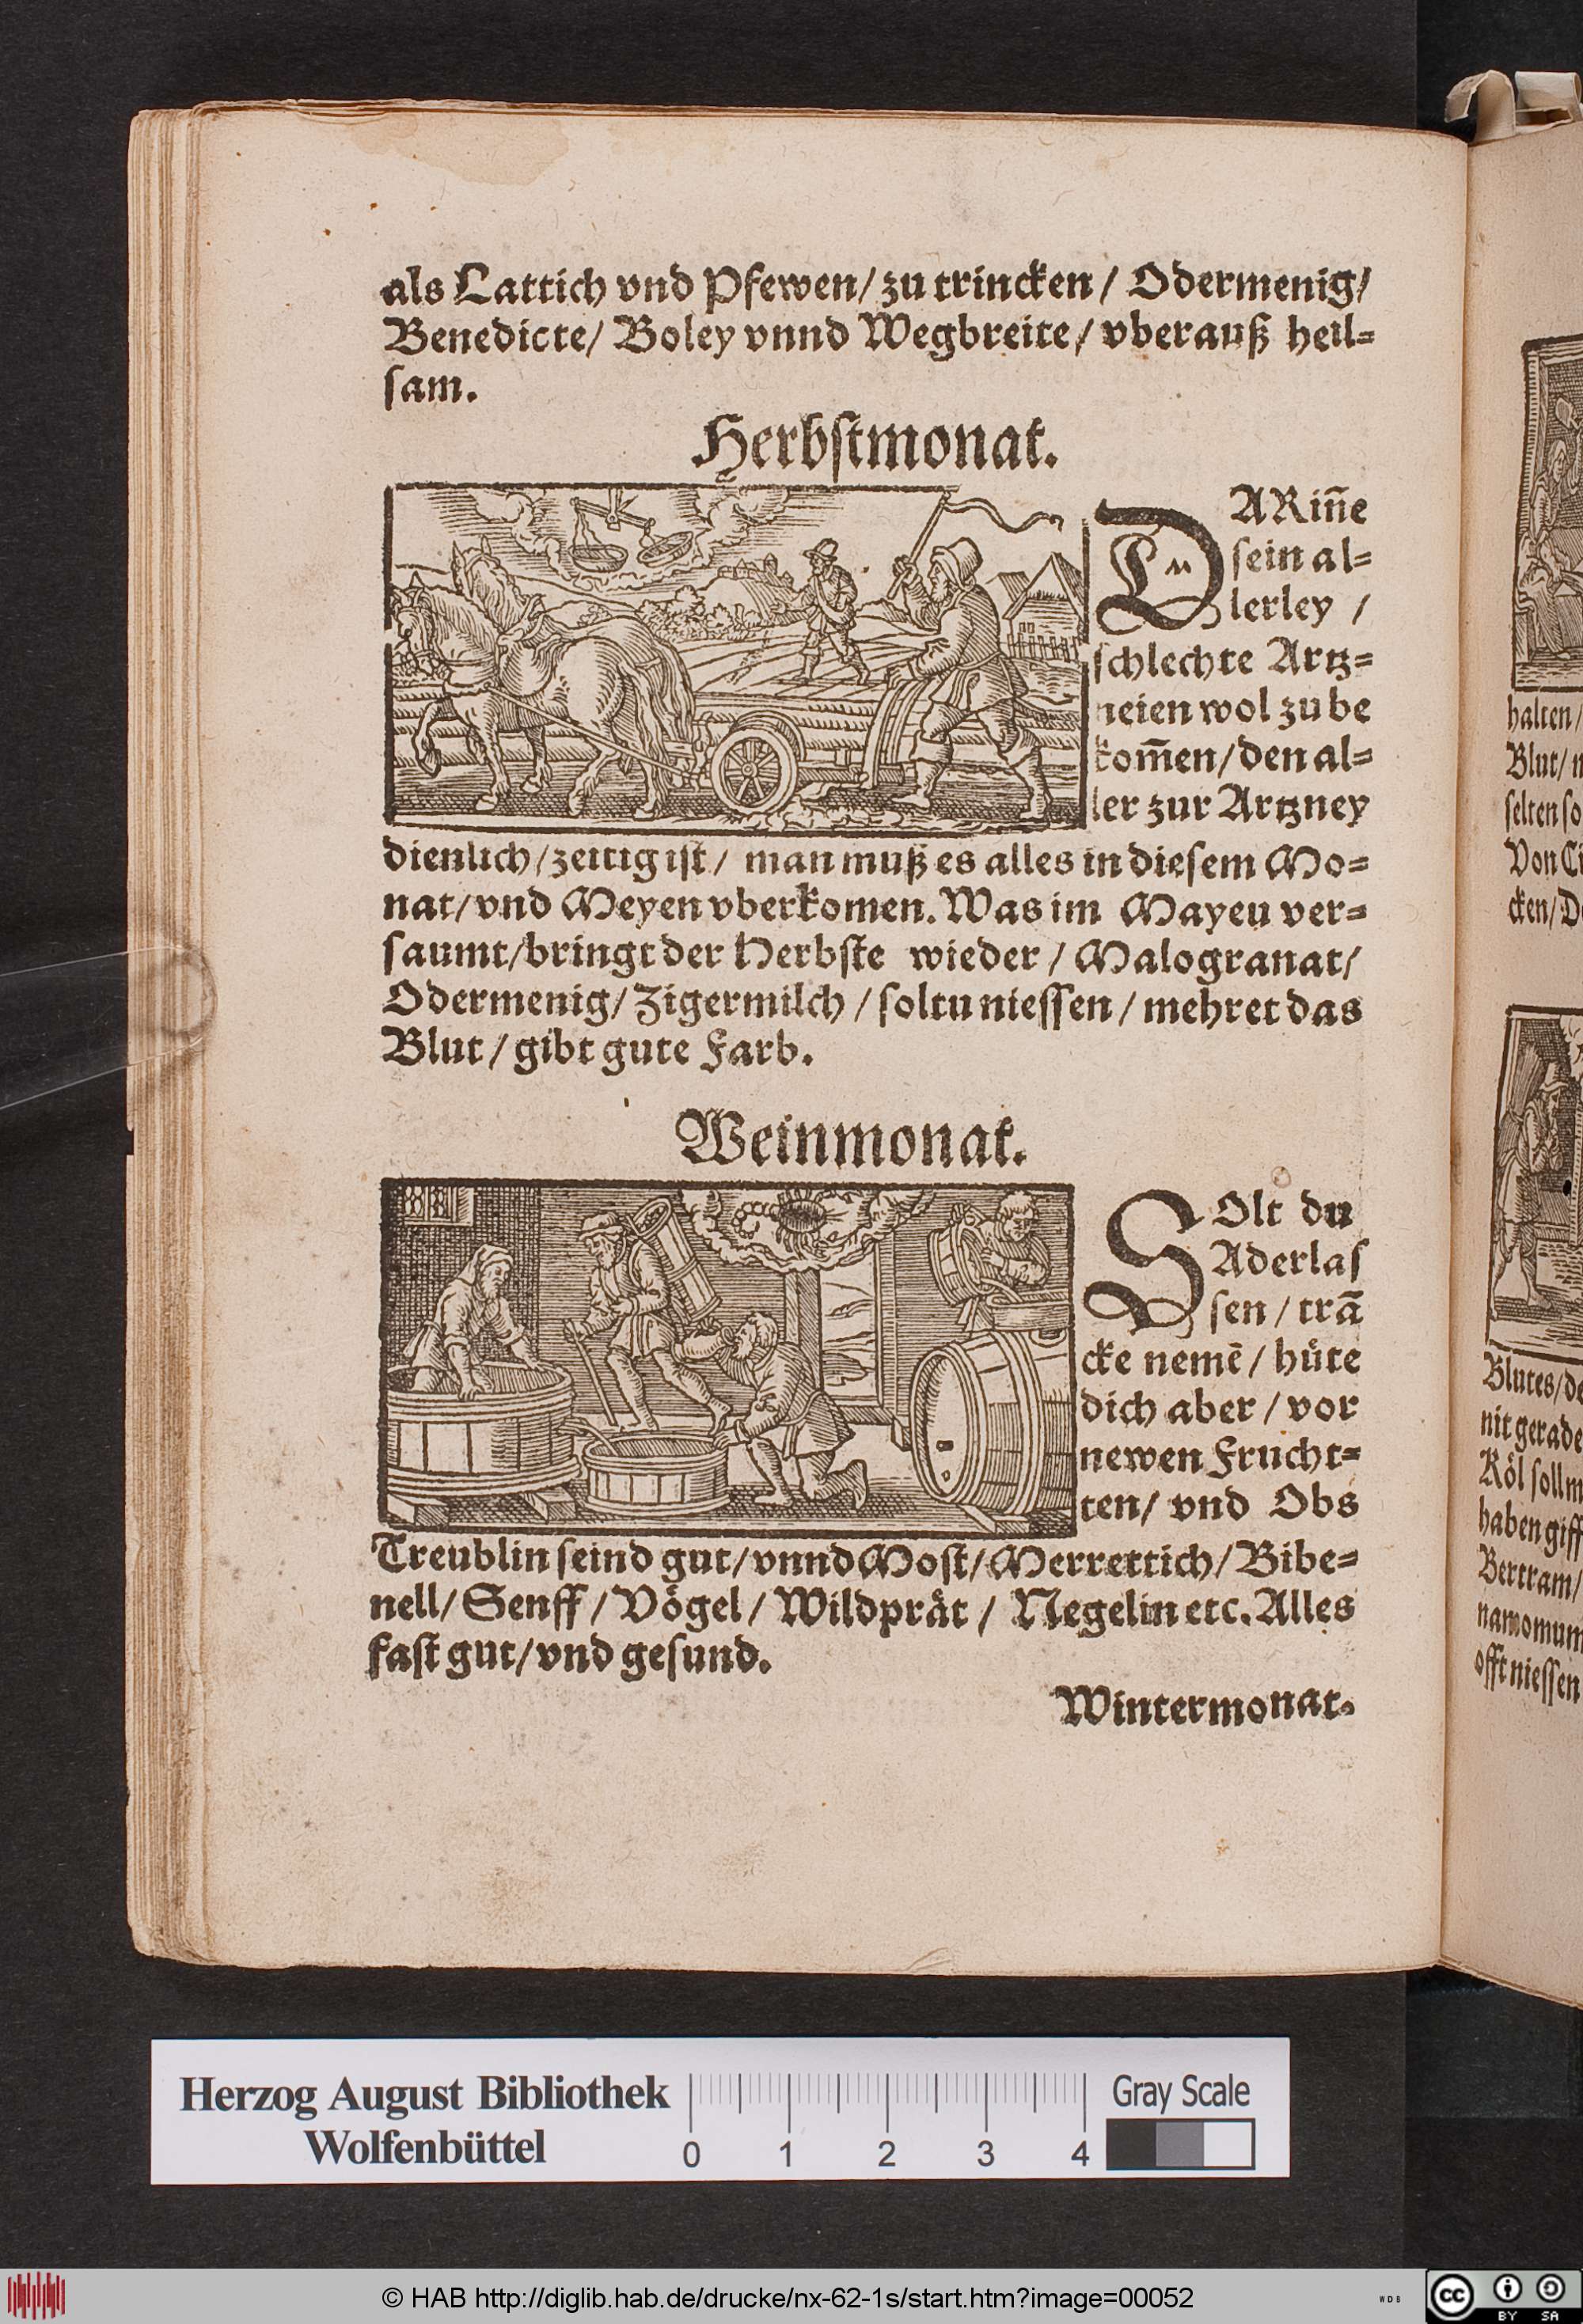 als Lattich vnd Pfewen/ zu trincken / Odermenig/
Benedicte/ Boley vnnd Wegbreite/ vberauß heil⸗
ſam.
Herbſtmonat.
DARiñe
ſein al⸗
lerley /
ſchlechte Artz⸗
neien wol zu be
kom̃en/ den al⸗
ler zur Artzney
dienlich/ zeitig iſt / man muß es alles in dieſem Mo⸗
nat/ vnd Meyen vberkomen. Was im Mayeu ver⸗
ſaumt/ bringt der Herbſte wieder / Malogranat/
Odermenig/ Zigermilch / ſoltu nieſſen / mehret das
Blut / gibt gute Farb.
Weinmonat.
SOlt du
Aderlaſ
ſen / trã
cke nemẽ / hüte
dich aber / vor
newen Frucht⸗
ten/ vnd Obs
Treublin ſeind gut/ vnnd Moſt/ Merrettich/ Bibe⸗
nell/ Senff / Vögel / Wildprät / Negelin etc. Alles
faſt gut/ vnd geſund.
Wintermonat.
halten/
Blut/
ſelten ſo
Von
cken/
Blutes/
nit gerade
Köl ſoll
haben giff
Bertram/
namomum
offt nieſſen
Herzog August Bibliothek
Wolfenbüttel
0 1 2 3 4
Gray Scale
© HAB http://diglib.hab.de/drucke/nx-62-1s/start.htm?image=00052
WDB
cc BY SA